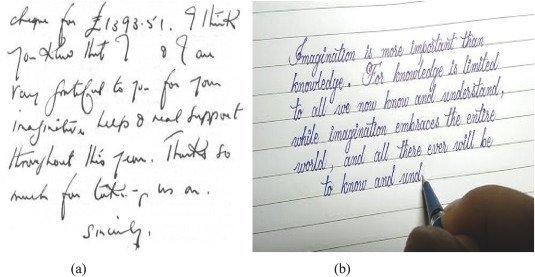 cheque for £1393.51. I think
you know that I & I am
very grateful to you for your
imaginative help & real support
throughout this year. Thanks so
much for taking us on.
Sincerely,
(a)
Imagination is more important than
knowledge. For knowledge is limited
to all we now know and understand,
while imagination embraces the entire
world, and all there ever will be
to know and und
(b)